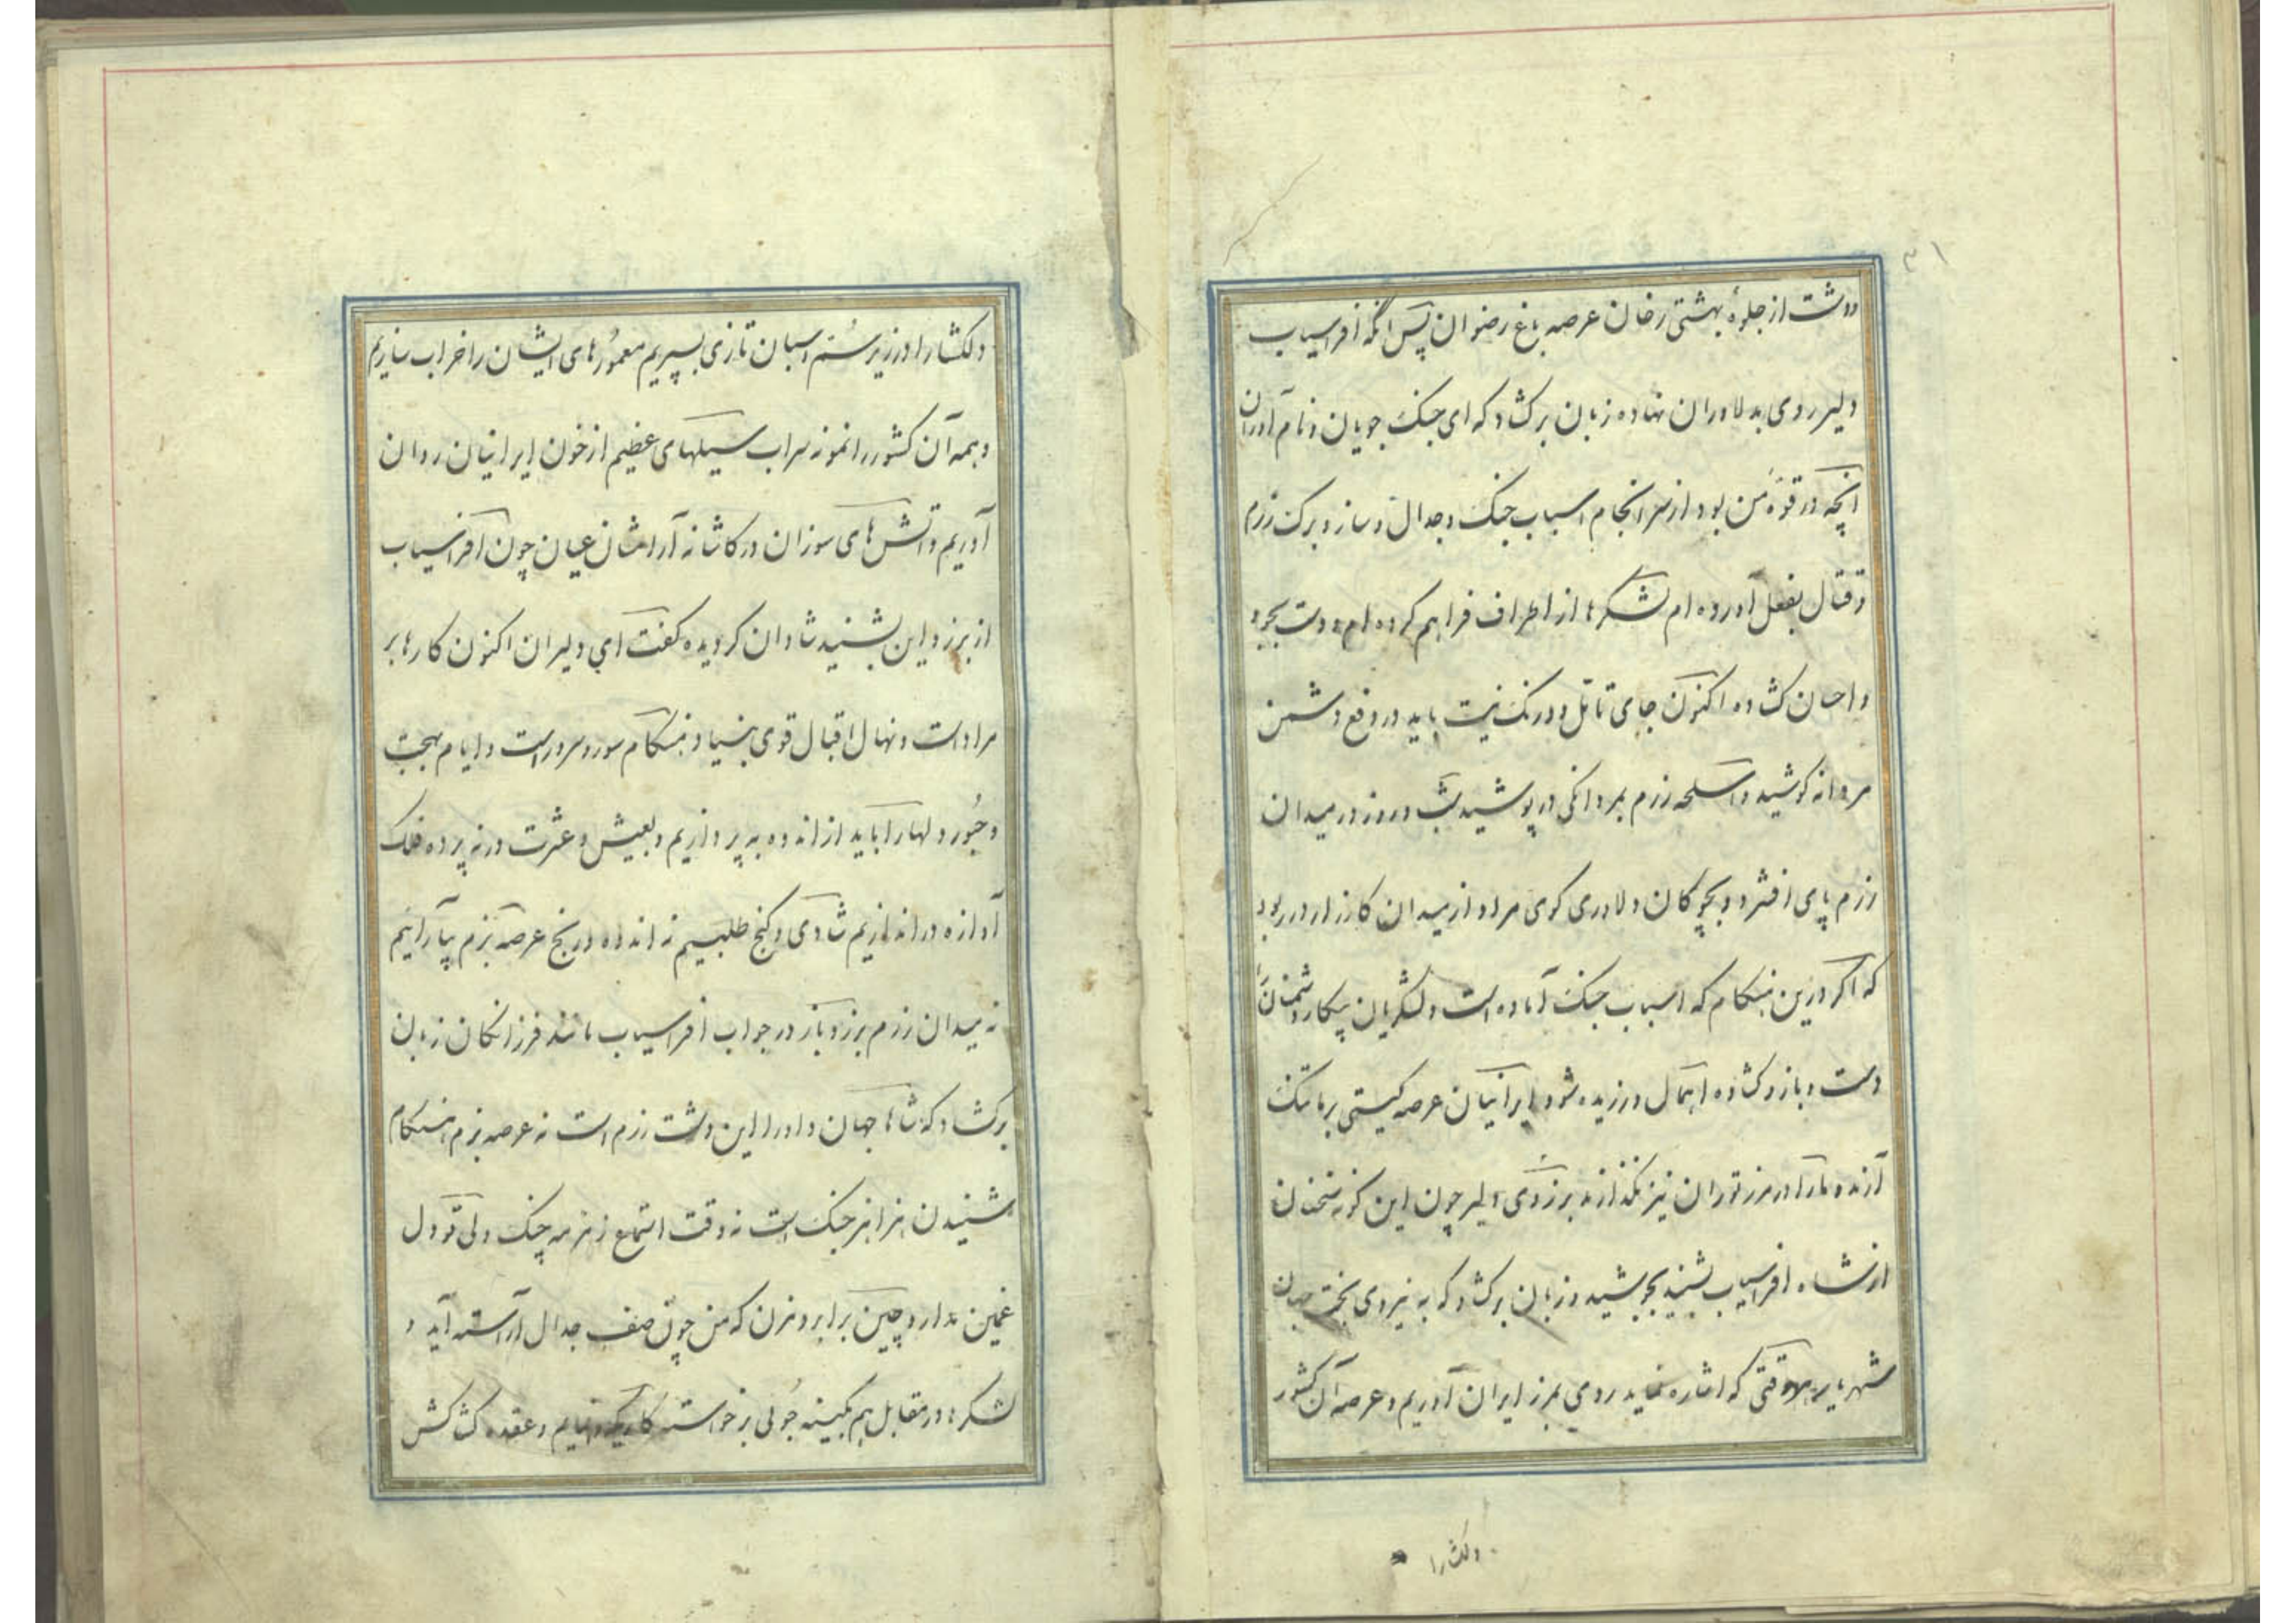 ۳۱
ودشت از جلوهٔ بهشتی رخان عرصه باغ رضوان پس آنگه افراسیاب
دلیر روی بدلاوران نهاده زبان برکشاد که ای جنک جویان و نام آوران
آنچه در قوهٔ من بود از سرانجام اسباب جنک و جدال و ساز و برک رزم
و قتال بفعل آورده ام لشکرها از اطراف فراهم کرده ام و دست بجود
و احسان کشاده اکنون جای تامل و درنک نیست باید در دفع دشمن
مردانه کوشید و اسلحه رزم بمردانکی در پوشید شب و روز در میدان
رزم پای افشرد و بچوکان دلاوری کوی مراد از میدان کارزار در ربود
که اکر درین هنکام که اسباب جنک آماده است و لشکریان پیکار دشمنان را
دست و بازو کشاده اهمال ورزیده شود ایرانیان عرصه کیتی بر ما تنک
آرند و ما را در مرز توران نیز نکذارند برزوی دلیر چون این کونه سخنان
از شاه افراسیاب بشنید بجوشید و زبان برکشاد که به نیروی بخت جوان
شهریار هر وقتی که اشاره نماید روی بمرز ایران آوریم و عرصه آن کشور
دلکشا را
دلکشا را در زیر سم اسبان تازی بسپریم معمورهای ایشان را خراب سازیم
و همه آن کشور را نمونه سراب سیلهای عظیم از خون ایرانیان روان
آوریم و آتش های سوزان در کاشانه آرامشان عیان چون افراسیاب
از برزو این بشنید شادان کردیده کفت ای دلیران اکنون کارها بر
مراد است و نهال اقبال قوی بنیاد هنکام سور و سرور است و ایام بهجت
و حبور دلها را باید از اندوه به پردازیم و بعیش و عشرت در نه پرده فلک
آوازه در اندازیم شادی و کنج طلبیم نه اندوه و رنج عرصه بزم بیارائیم
نه میدان رزم برزو باز در جواب افراسیاب مانند فرزانکان زبان
برکشاد که شاها جهان داورا این دشت رزم است نه عرصه بزم هنکام
شنیدن هزاهز جنک است نه وقت استماع زمزمه چنک ولی تو دل
غمین مدار و چین بر ابرو مزن که من چون صف جدال آراسته آید و
لشکرها در مقابل هم بکینه جوئی برخواسته کار یکرو نمایم و عقده کشاکش